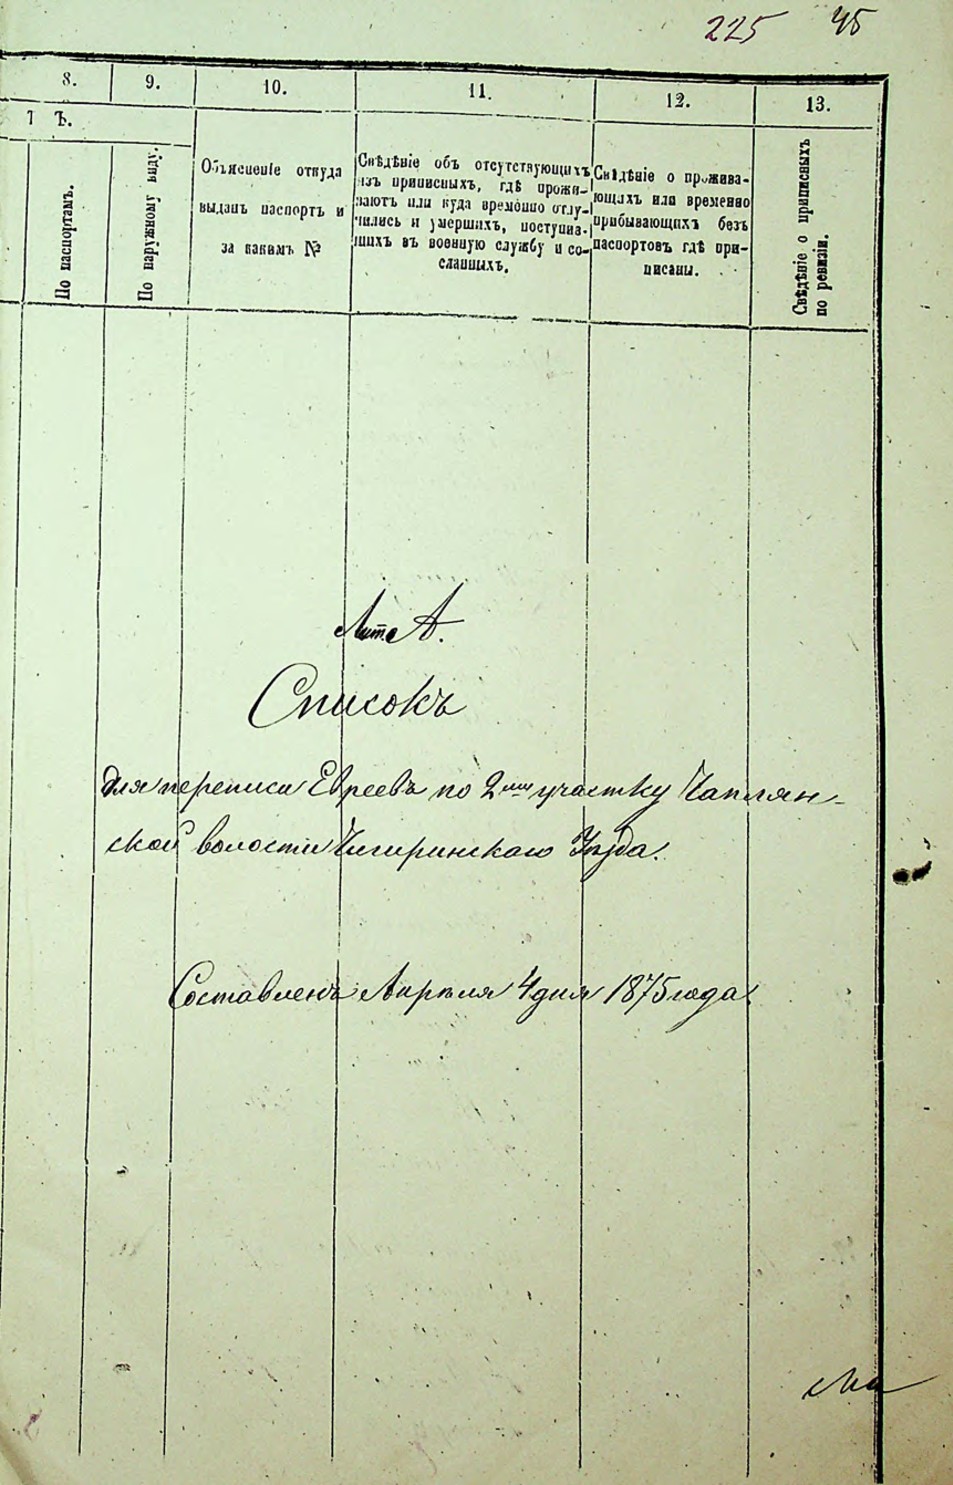 225 45
8. 9. 10. 11. 12. 13.
Ъ.
По паспортамъ.
По наружному виду.
Объясненіе откуда
выданъ паспортъ и
за какимъ №
Свѣдѣніе объ отсутствующихъ
изъ приписныхъ, гдѣ прожи-
ваютъ или куда временно отлу-
чились и умершихъ, поступив-
шихъ въ военную службу и со-
сланныхъ.
Свѣдѣніе о прожива-
ющихъ или временно
прибывающихъ безъ
паспортовъ гдѣ при-
писаны.
Свѣдѣніе о приписныхъ
по ревизіи.
Лит. А.
Списокъ
для переписи Евреевъ по 2му участку Чаплян-
ской волости Чигиринскаго Уѣзда.
Составленъ Апрѣля 4 дня 1875 года.